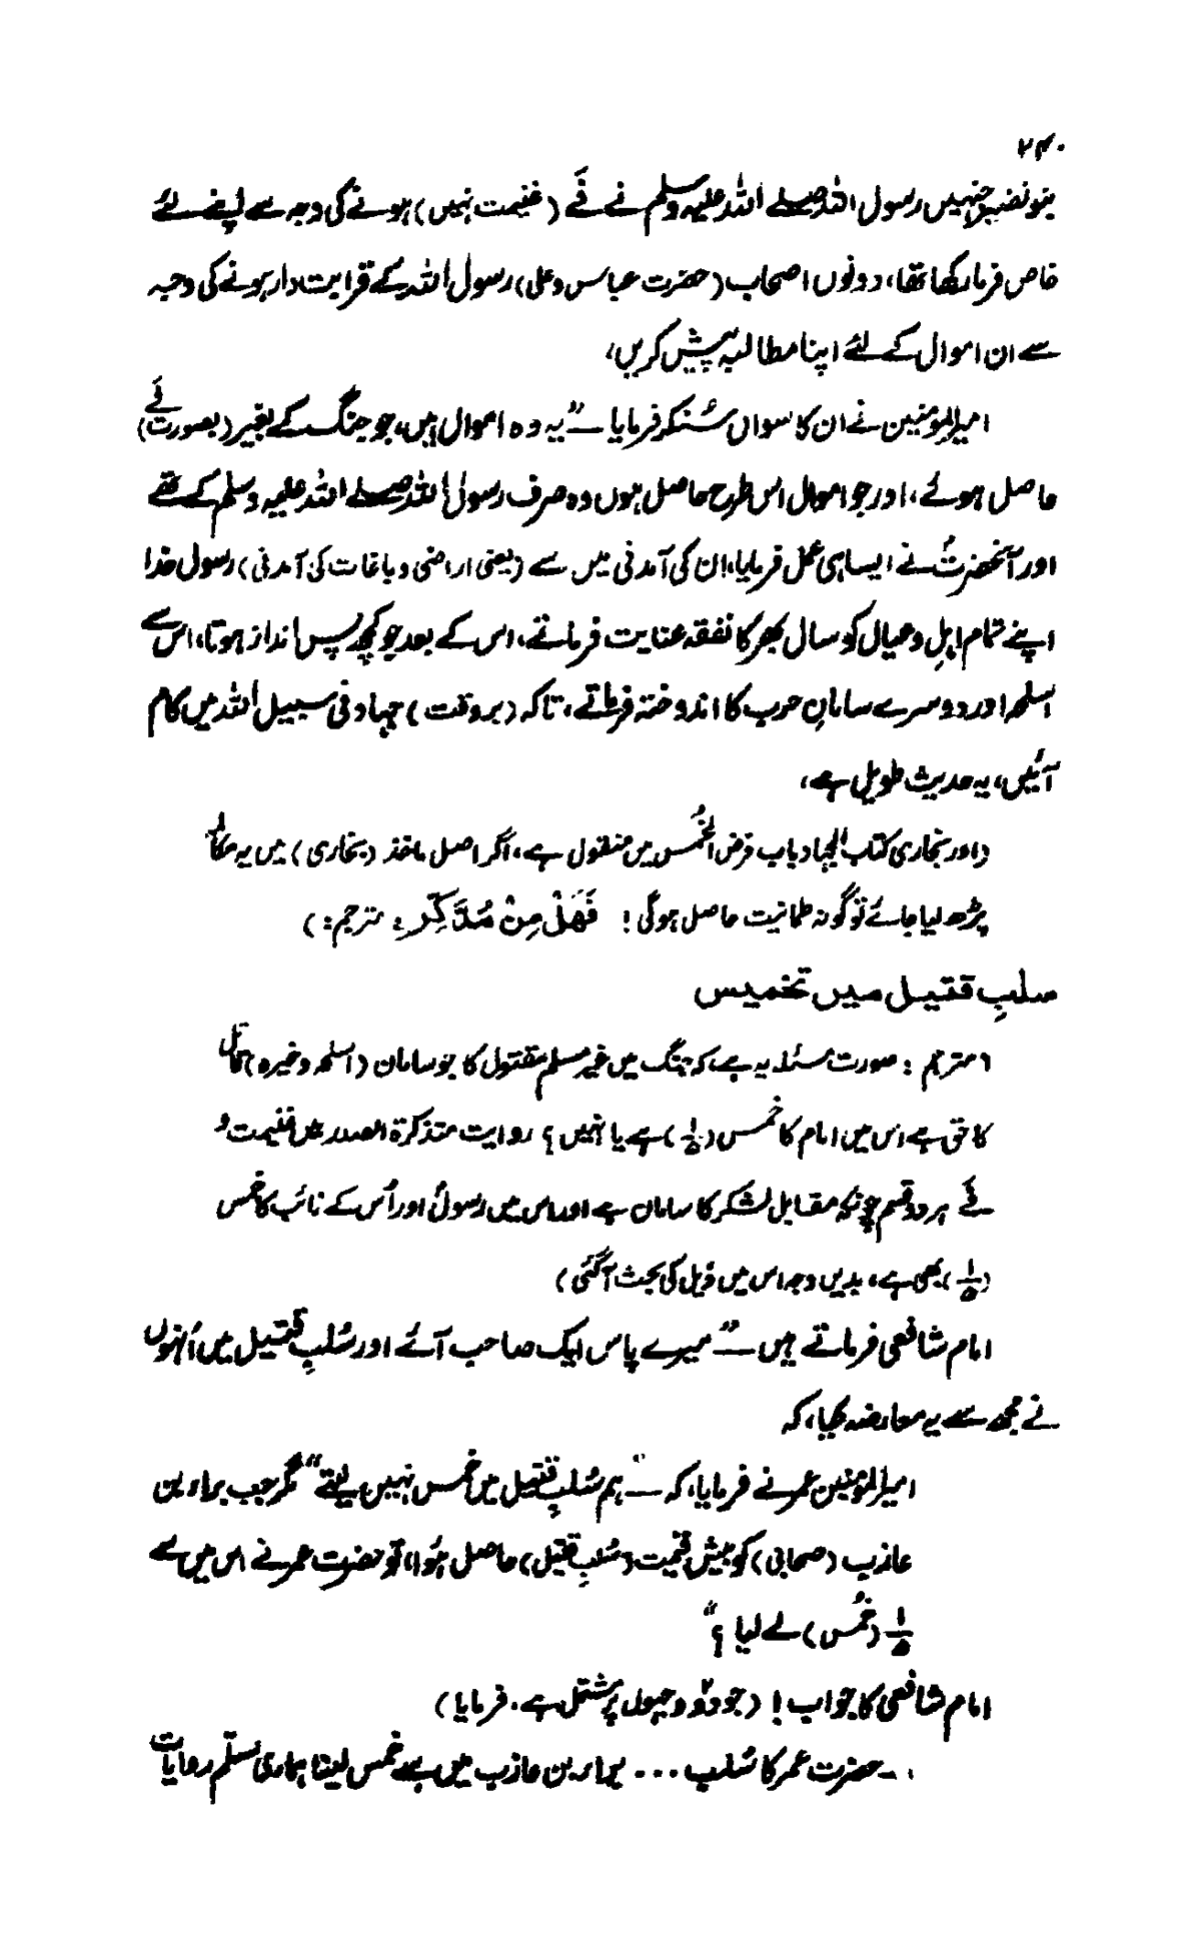 ۲۴۰
بنو نضیر جنہیں رسول اللہ صلے اللہ علیہ وسلم نے فَے (غنیمت نہیں) ہونے کی وجہ سے اپنے لئے
خاص فرما رکھا تھا، دونوں اصحاب (حضرت عباس و علی) رسول اللہ کے قرابت دار ہونے کی وجہ
سے ان اموال کے لئے اپنا مطالبہ پیش کریں،
امیر المومنین نے ان کا سوال سُنکر فرمایا — ”یہ وہ اموال ہیں، جو جنگ کے بغیر (بصورت فَے)
حاصل ہوئے، اور جو اموال اس طرح حاصل ہوں وہ صرف رسول اللہ صلے اللہ علیہ وسلم کے تھے
اور آنحضرتؐ نے ایسا ہی عمل فرمایا، ان کی آمدنی میں سے (یعنی اراضی و باغات کی آمدنی) رسول خدا
اپنے تمام اہلِ و عیال کو سال بھر کا نفقہ عنایت فرماتے، اس کے بعد جو کچھ پس انداز ہوتا، اس سے
اسلحہ اور دوسرے سامانِ حرب کا اندوختہ فرماتے، تاکہ (بروقت) جہاد فی سبیل اللہ میں کام
آئیں، یہ حدیث طویل ہے،
(اور بخاری کتاب الجہاد باب فرض الخمُس میں منقول ہے، اگر اصل ماخذ (بخاری) میں یہ مکالمہ
پڑھ لیا جائے تو گونہ طمانیت حاصل ہوگی! فَهَلْ مِنْ مُدَّكِرٍ؛ مترجم:)
سلبِ قتیل میں تخمیس
(مترجم : صورت مسئلہ یہ ہے کہ جنگ میں غیر مسلم مقتول کا جو سامان (اسلحہ وغیرہ) قاتل
کا حق ہے اس میں امام کا خمس (۱/۵) ہے یا نہیں؟ روایت متذکرۃ الصدر میں غنیمت و
فَے ہر دو قسم چونکہ مقابل لشکر کا سامان ہے اور اس میں رسولؐ اور اُس کے نائب کا خمس
(۱/۵) بھی ہے، بدیں وجہ اس میں ذیل کی بحث آگئی)
امام شافعی فرماتے ہیں — ”میرے پاس ایک صاحب آئے اور سَلبِ قتیل میں اُنہوں
نے مجھ سے یہ معارضہ کیا، کہ
امیر المومنین عمر نے فرمایا، کہ — ”ہم سَلبِ قتیل میں خمس نہیں لیتے“ مگر جب براء بن
عازب (صحابی) کو بیش قیمت (سَلبِ قتیل) حاصل ہُوا، تو حضرت عمر نے اس میں سے
۱/۵ (خُمس) لے لیا ؟“
امام شافعی کا جواب! (جو دوؔ وجہوں پر مشتمل ہے۔ فرمایا)
۱۔ حضرت عمر کا سَلب ... براء بن عازب میں سے خمس لینا ہماری مسلّم روایات